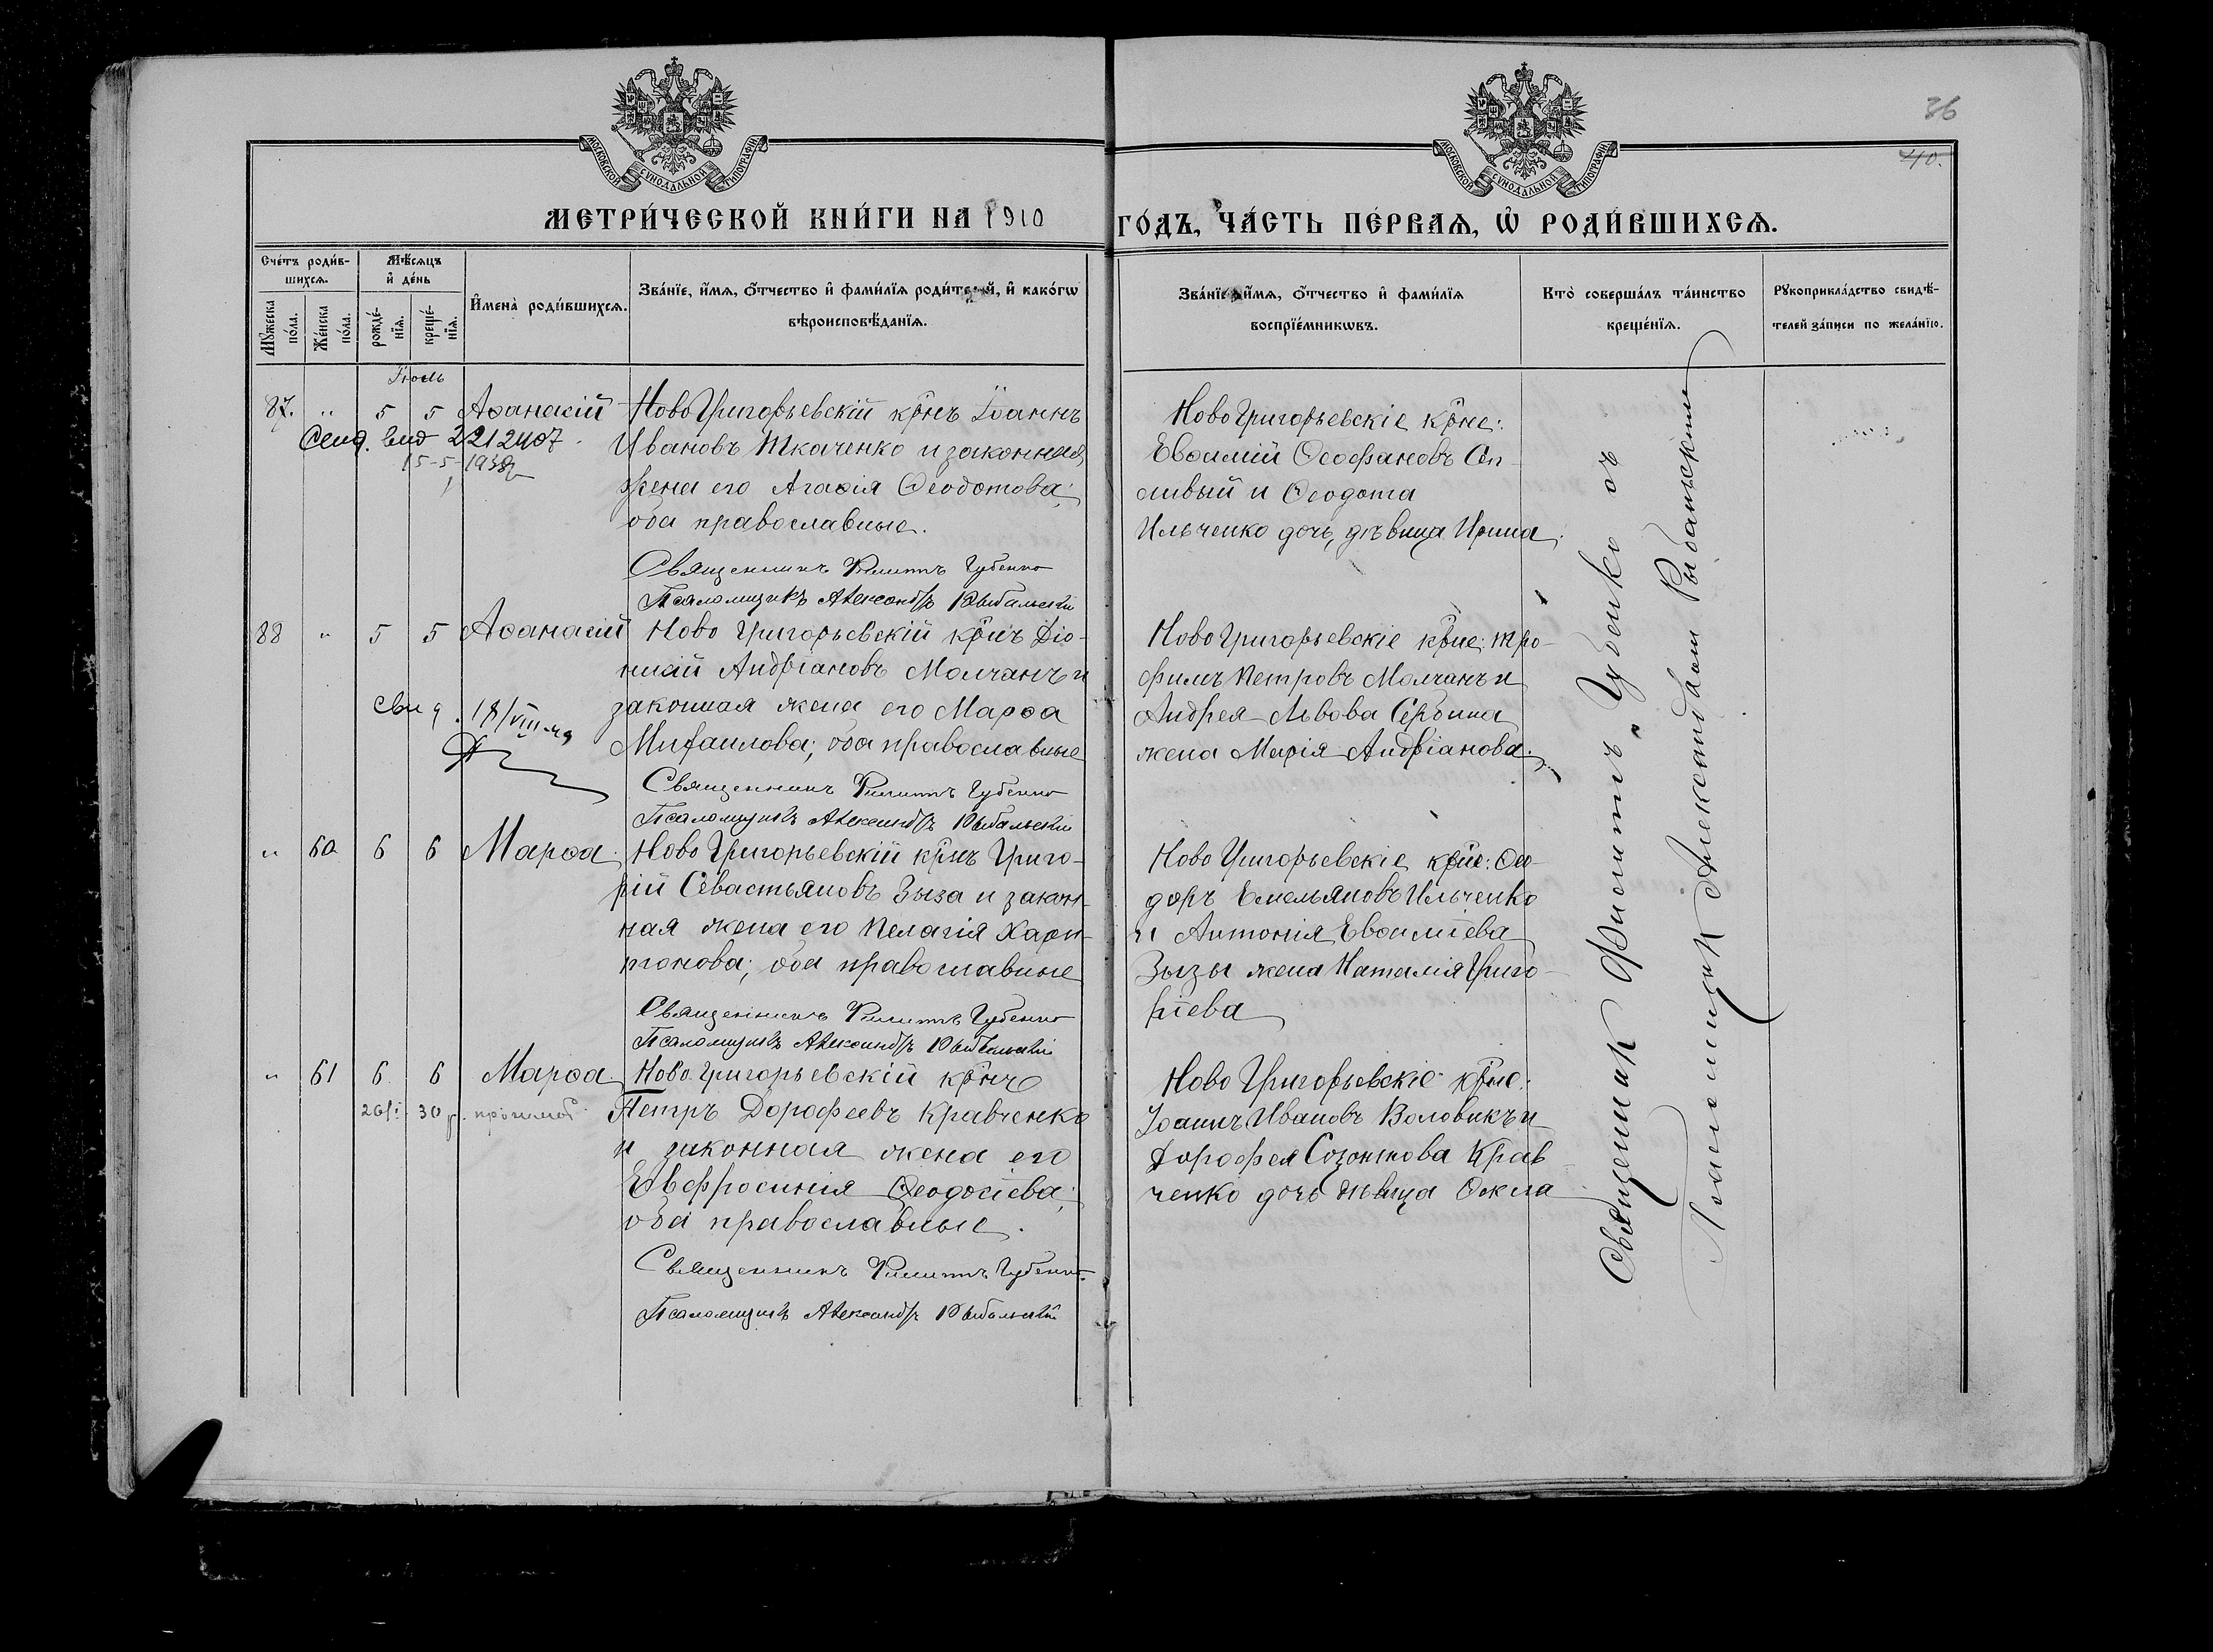 36
40.
МОСКОВСКОЙ СѴНОДАЛЬНОЙ ТИПОГРАФІИ
МОСКОВСКОЙ СѴНОДАЛЬНОЙ ТИПОГРАФІИ
МЕТРИ́ЧЕСКОЙ КНИ́ГИ НА 1910
ГО́ДЪ, ЧА́СТЬ ПЕ́РВАѦ, Ѡ҆ РОДИ́ВШИХСѦ.
Сче́тъ роди́в-
шихсѧ.
Мꙋ́жеска по́ла.
Же́нска по́ла.
Мѣ́сѧцъ
и҆ де́нь
рожде́-нїѧ.
креще́-нїѧ.
И҆мена̀ роди́вшихсѧ.
Зва́нїе, и҆́мѧ, ѻ҆́тчество и҆ фами́лїѧ роди́телей, и҆ како́гѡ
вѣроисповѣ́данїѧ.
Зва́нїе, и҆́мѧ, ѻ҆́тчество и҆ фами́лїѧ
воспрїе́мникѡвъ.
Кто̀ соверша́лъ та́инство
креще́нїѧ.
Рꙋкоприкла́дство свидѣ́-
телей за́писи по жела́нїю.
Іюль
87. " 5 5 Аѳанасій
Ново Григорьевскій крнъ Іоаннъ
Ивановъ Ткаченко и законная
жена его Агаѳія Ѳеодотова;
оба православные.
2212407
15-5-1938
Священникъ Филиппъ Губенко
Псаломщикъ Александръ Рыбальскій
Ново Григорьевскіе крне:
Евѳимій Ѳеофановъ Сп-
сивый и Ѳеодота
Ильченко дочь, дѣвица Ирина.
88 " 5 5 Аѳанасій
Ново Григорьевскій крнъ Діо-
нисій Андріановъ Молчанъ и
законная жена его Марѳа
Михаилова; оба православные
свид. 18/VIII-49
Священникъ Филиппъ Губенко
Псаломщикъ Александръ Рыбальскій
Ново Григорьевскіе крне: Тро-
фимъ Петровъ Молчанъ и
Андрея Львова Сербина
жена Марія Андріанова.
" 60 6 6 Марѳа
Ново Григорьевскій крнъ Григо-
рій Севастьяновъ Зыза и закон-
ная жена его Пелагія Хари-
тонова; оба православные
Священникъ Филиппъ Губенко
Псаломщикъ Александръ Рыбальскій
Ново Григорьевскіе крне: Ѳео-
доръ Емельяновъ Ильченко
и Антонія Евѳиміева
Зызы жена Наталія Григо-
ріева
" 61 6 6 Марѳа
Ново Григорьевскій крнъ
Петръ Дорофеевъ Кравченко
и законная жена его
Евфросинія Ѳеодосіева;
оба православные.
Священникъ Филиппъ Губенко
Псаломщикъ Александръ Рыбальскій
Ново Григорьевскіе крне:
Іоаннъ Ивановъ Воловикъ и
Дорофея Созонтова Крав
ченко дочь дѣвица Ѳекла
Священник Филиппъ Губенко съ
Псаломщик Александром Рыбальским